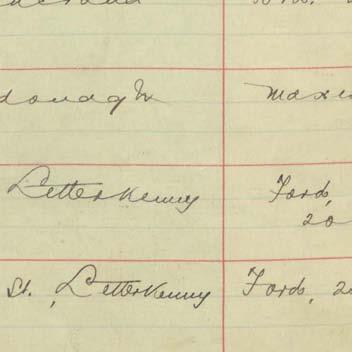 donagh Maxw
Letterkenny Ford,
20
St., Letterkenny Ford, 20